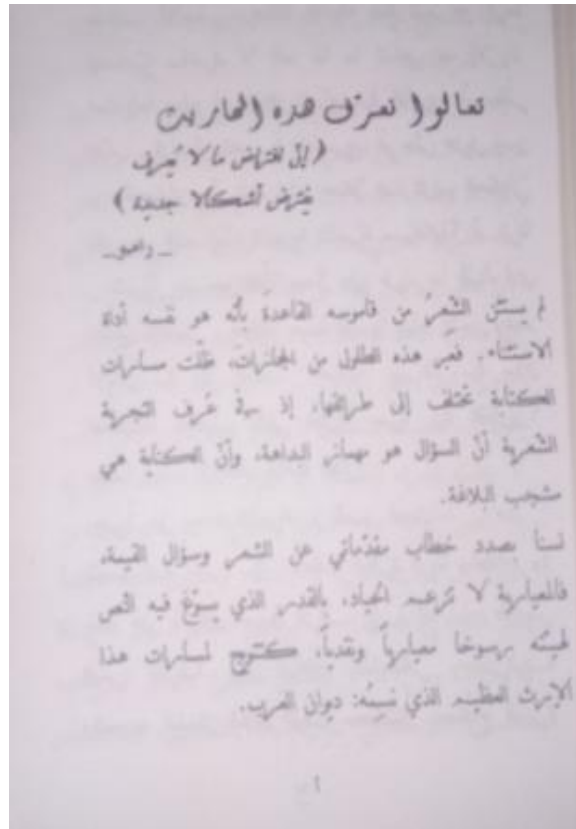 تعالوا نعرّف هذه الهاربت
(إنّ افتراض ما لا يُعرف
يفترض أشكالا جديدة)
- رامبو -
لم يستثن الشّعرُ من قاموسه القاعدة بأنّه هو نفسه أداة
الاستثناء. فعبر هذه الطلول من المجازات، ظلّت مسارات
الكتابة تختلف إلى طرائقها، إذ في عُرف التجربة
الشّعرية أنّ السؤال هو مهماز البداهة، وأنّ الكتابة هي
مشجب البلاغة.
لسنا بصدد خطاب مقدّماتي عن الشعر وسؤال القيمة،
فالمعيارية لا تزعم الحياد، بالقدر الذي يسوّغ فيه النص
رسوخا معيارياً ونقدياً، كتتويج لمسارات هذا
الإرث العظيم الذي نسمّيه: ديوان العرب.